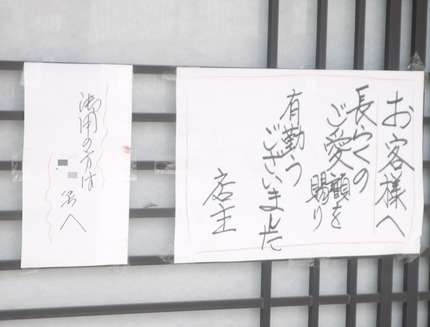 お客様へ
長らくの
ご愛顧を
賜り
有勤う
ございました
店主
御用の方は
へ